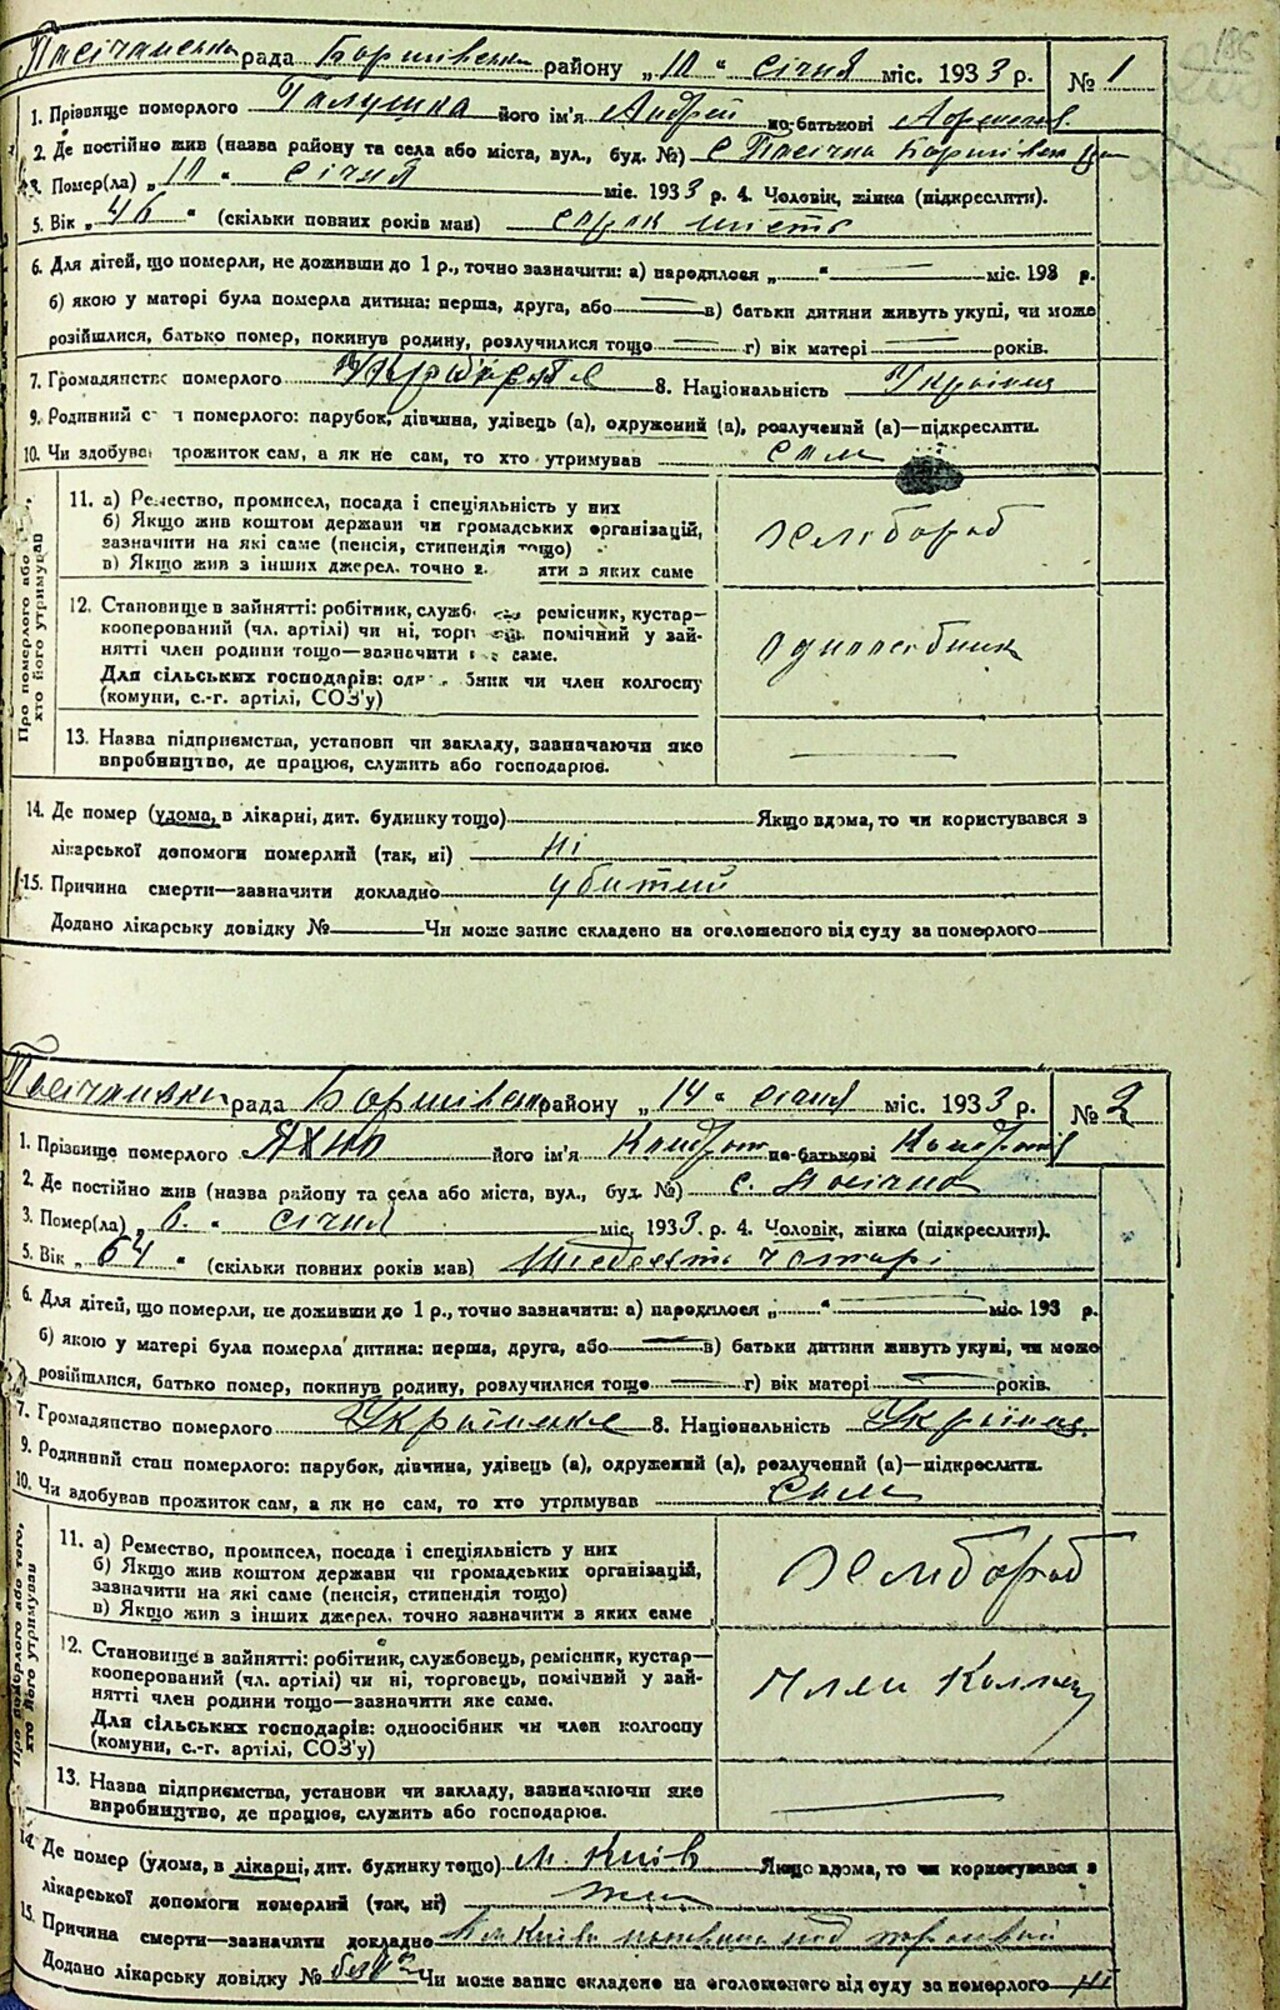 186
Пасічанська рада Борщівськ району „10“ січня міс. 1933 р. № 1
1. Прізвище померлого Галушка його ім'я Андрій по-батькові
2. Де постійно жив (назва району та села або міста, вул., буд. №) с Пасічна Борщівск
3. Помер(ла) „10“ січня міс. 1933 р. 4. Чоловік, жінка (підкреслити).
5. Вік „46“ (скільки повних років мав) сорок шість
6. Для дітей, що померли, не доживши до 1 р., точно зазначити: а) народилося „ “ міс. 193 р.
б) якою у матері була померла дитина: перша, друга, або в) батьки дитини живуть укупі, чи може
розійшлися, батько помер, покинув родину, розлучилися тощо г) вік матері років.
7. Громадянство померлого 8. Національність Українец
9. Родинний с н померлого: парубок, дівчина, удівець (а), одружений (а), розлучений (а)—підкреслити.
10. Чи здобува прожиток сам, а як не сам, то хто утримував сам
Про померлого або
хто його утримував
11. а) Ремество, промисел, посада і спеціяльність у них
б) Якщо жив коштом держави чи громадських організацій,
зазначити на які саме (пенсія, стипендія тощо)
в) Якщо жив з інших джерел, точно з ити з яких саме
хлібороб
12. Становище в зайнятті: робітник, служб ремісник, кустар—
кооперований (чл. артілі) чи ні, торг помічний у зай-
нятті член родини тощо—зазначити саме.
Для сільських господарів: од бник чи член колгоспу
(комуни, с.-г. артілі, СОЗ'у)
одноосібник
13. Назва підприємства, установи чи закладу, зазначаючи яке
виробництво, де працює, служить або господарює.
14. Де помер (удома, в лікарні, дит. будинку тощо) Якщо вдома, то чи користувався з
лікарської допомоги померлий (так, ні) ні
15. Причина смерти—зазначити докладно убитий
Додано лікарську довідку № Чи може запис складено на оголошеного від суду за померлого
Пасічанська рада Борщівськ району „14“ січня міс. 1933 р. № 2
1. Прізвище померлого Яхно його ім'я Кондрат по-батькові
2. Де постійно жив (назва району та села або міста, вул., буд. №) с. Пасічна
3. Помер(ла) „6.“ січня міс. 1933 р. 4. Чоловік, жінка (підкреслити).
5. Вік „64“ (скільки повних років мав) шісдесять чотирі
6. Для дітей, що померли, не доживши до 1 р., точно зазначити: а) народилося „ “ міс. 193 р.
б) якою у матері була померла дитина: перша, друга, або в) батьки дитини живуть укупі, чи може
розійшлися, батько помер, покинув родину, розлучилися тощо г) вік матері років.
7. Громадянство померлого Українське 8. Національність Українец.
9. Родинний стан померлого: парубок, дівчина, удівець (а), одружений (а), розлучений (а)—підкреслити.
10. Чи здобував прожиток сам, а як не сам, то хто утримував Сам
Про померлого або того,
хто його утримував
11. а) Ремество, промисел, посада і спеціяльність у них
б) Якщо жив коштом держави чи громадських організацій,
зазначити на які саме (пенсія, стипендія тощо)
в) Якщо жив з інших джерел, точно зазначити з яких саме
Хлібороб
12. Становище в зайнятті: робітник, службовець, ремісник, кустар—
кооперований (чл. артілі) чи ні, торговець, помічний у зай-
нятті член родини тощо—зазначити яке саме.
Для сільських господарів: одноосібник чи член колгоспу
(комуни, с.-г. артілі, СОЗ'у)
Член
13. Назва підприємства, установи чи закладу, зазначаючи яке
виробництво, де працює, служить або господарює.
14. Де помер (удома, в лікарні, дит. будинку тощо) м. Київ Якщо вдома, то чи користувався з
лікарської допомоги померлий (так, ні)
15. Причина смерти—зазначити докладно под трамвай
Додано лікарську довідку № без № Чи може запис складено на оголошеного від суду за померлого ні